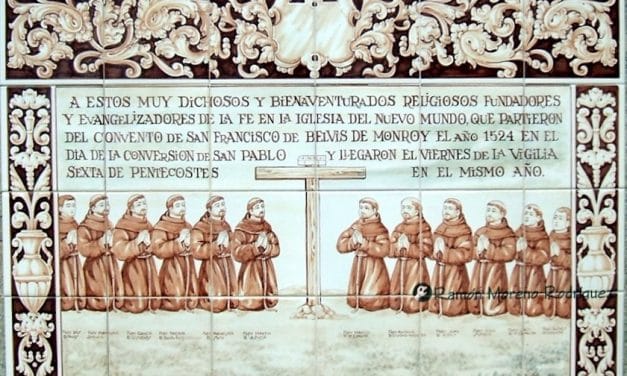 A ESTOS MUY DICHOSOS Y BIENAVENTURADOS RELIGIOSOS FUNDADORES
Y EVANGELIZADORES DE LA FE EN LA IGLESIA DEL NUEVO MUNDO, QUE PARTIERON
DEL CONVENTO DE SAN FRANCISCO DE BELVIS DE MONROY EL AÑO 1524 EN EL
DIA DE LA CONVERSION DE SAN PABLO Y LLEGARON EL VIERNES DE LA VIGILIA
SEXTA DE PENTECOSTES EN EL MISMO AÑO.
Ramón Moreno Rodríguez